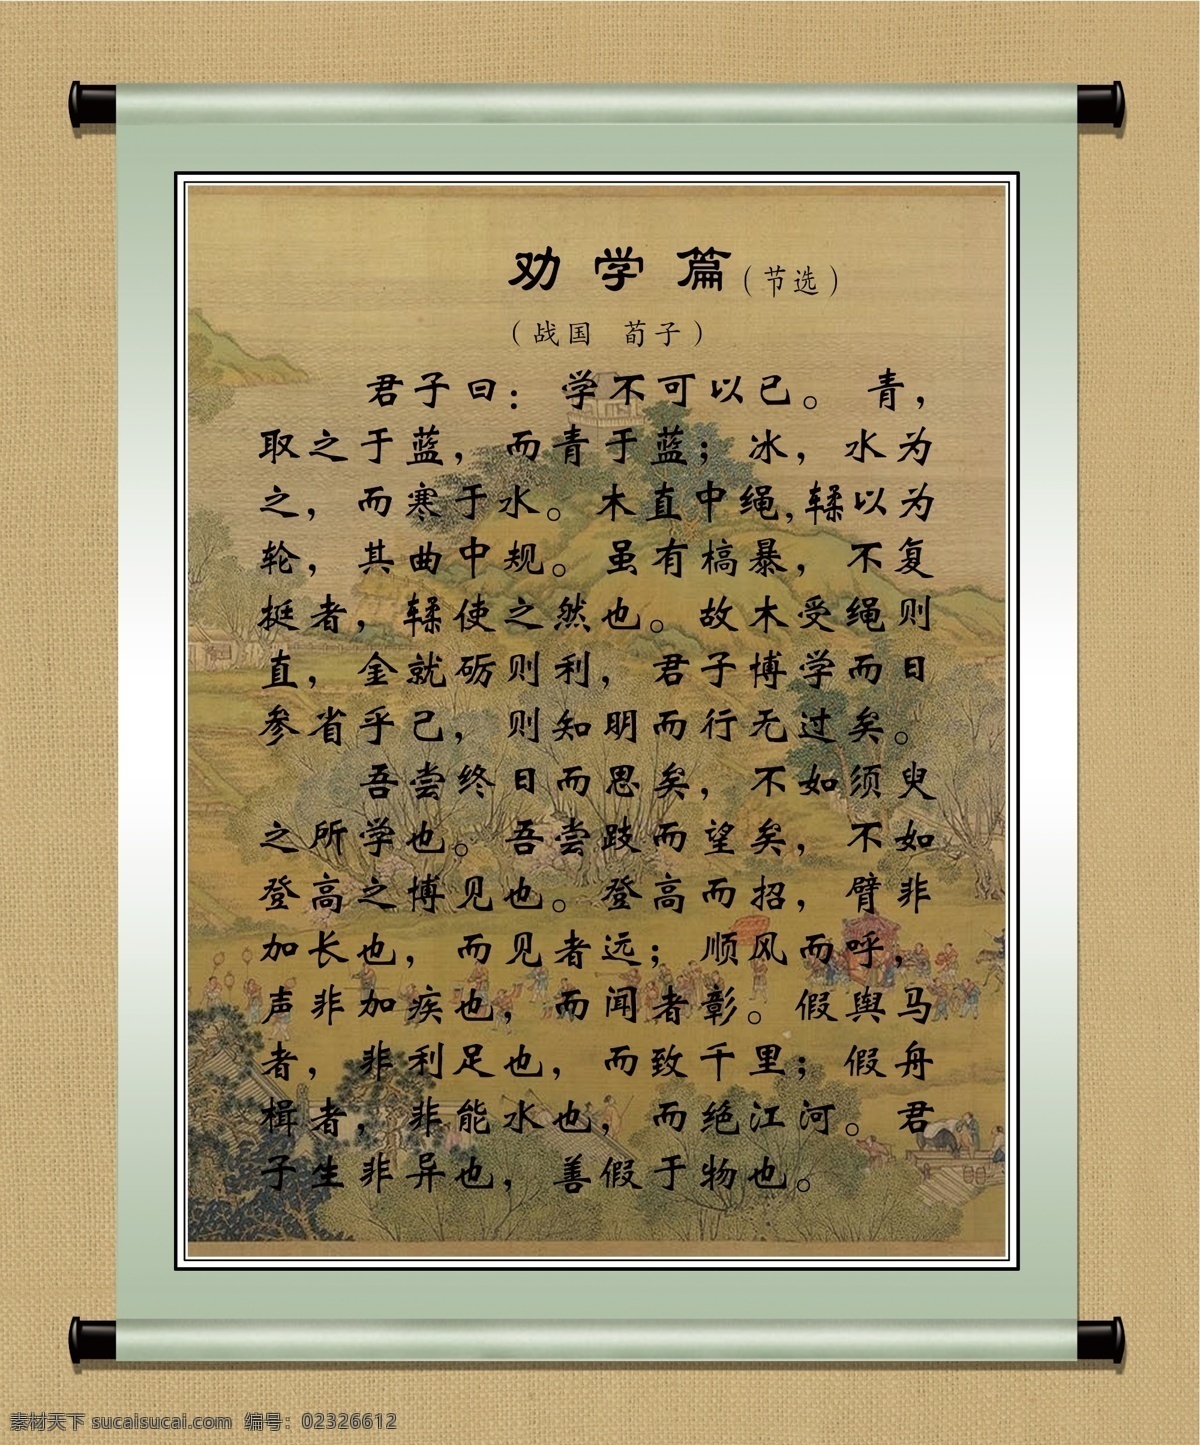 劝学篇(节选)
(战国 荀子)
君子曰：学不可以已。青，
取之于蓝，而青于蓝；冰，水为
之，而寒于水。木直中绳，𫐓以为
轮，其曲中规。虽有槁暴，不复
挺者，𫐓使之然也。故木受绳则
直，金就砺则利，君子博学而日
参省乎己，则知明而行无过矣。
吾尝终日而思矣，不如须臾
之所学也。吾尝跂而望矣，不如
登高之博见也。登高而招，臂非
加长也，而见者远；顺风而呼，
声非加疾也，而闻者彰。假舆马
者，非利足也，而致千里；假舟
楫者，非能水也，而绝江河。君
子生非异也，善假于物也。
素材天下 sucaisucai.com 编号：02326612